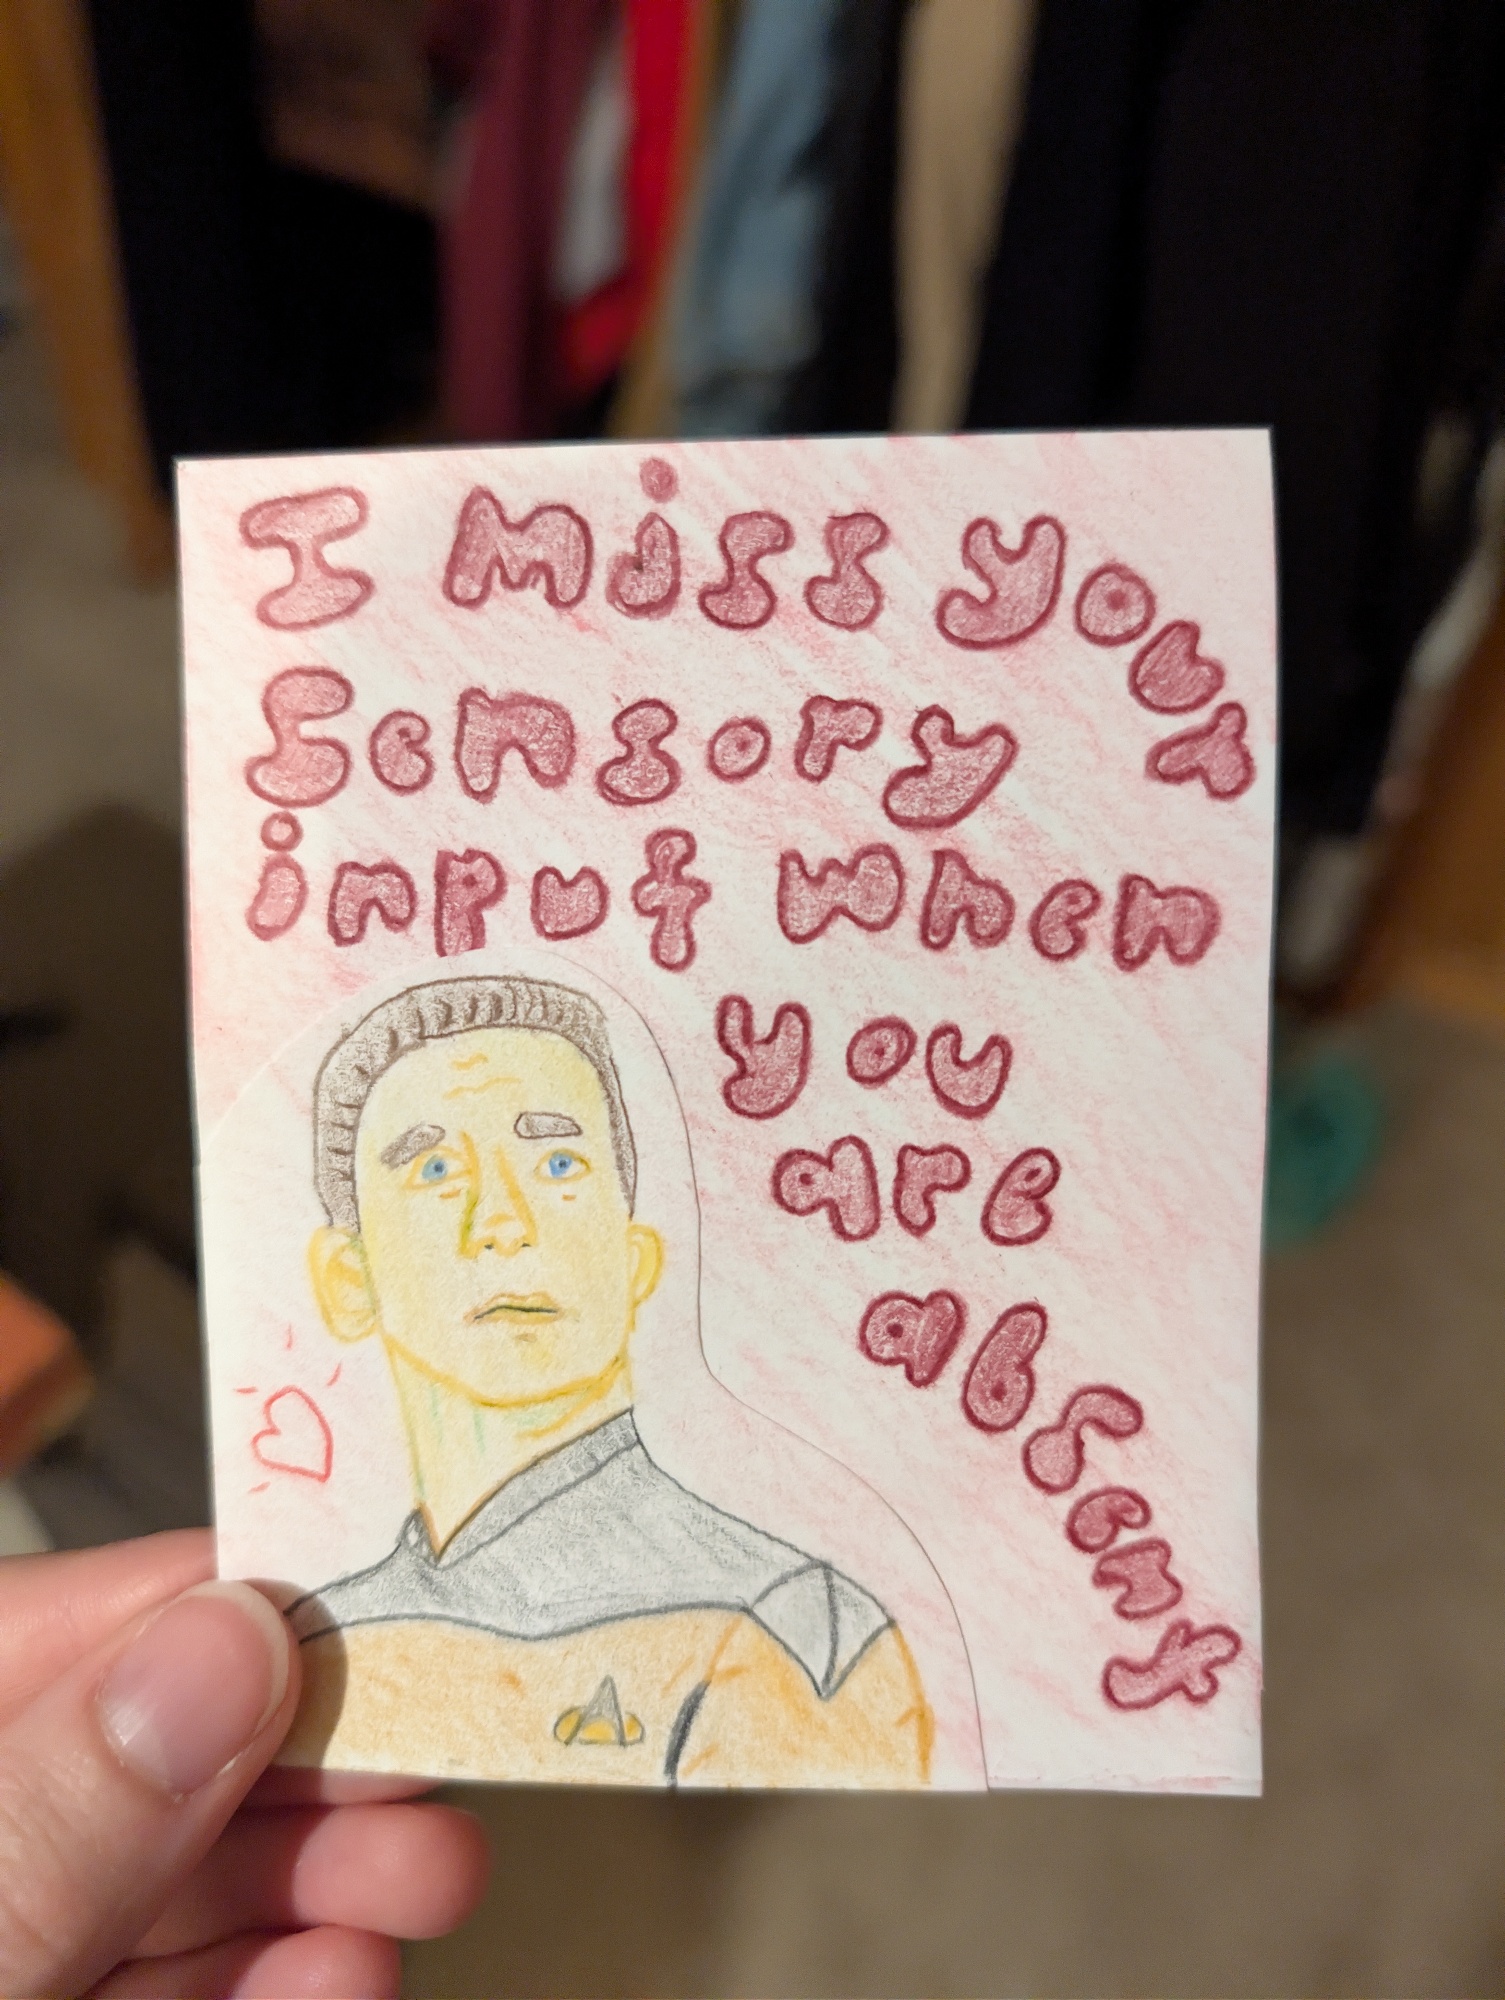 I miss your
Sensory
input when
you
are
absent